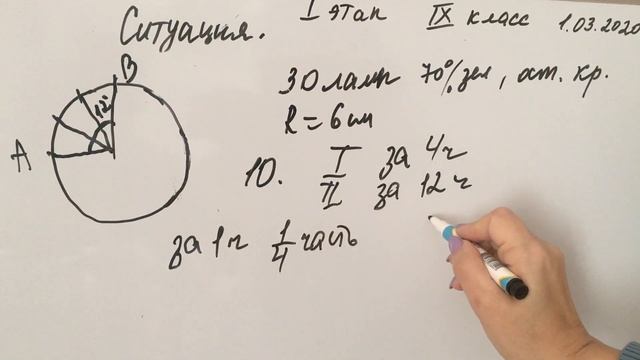 Ситуация. I этап IX класс 1.03.2020
B
12°
A
30 ламп 70% зел, ост. кр.
R = 6 см
10. I за 4 ч
II за 12 ч
за 1 ч 1/4 часть